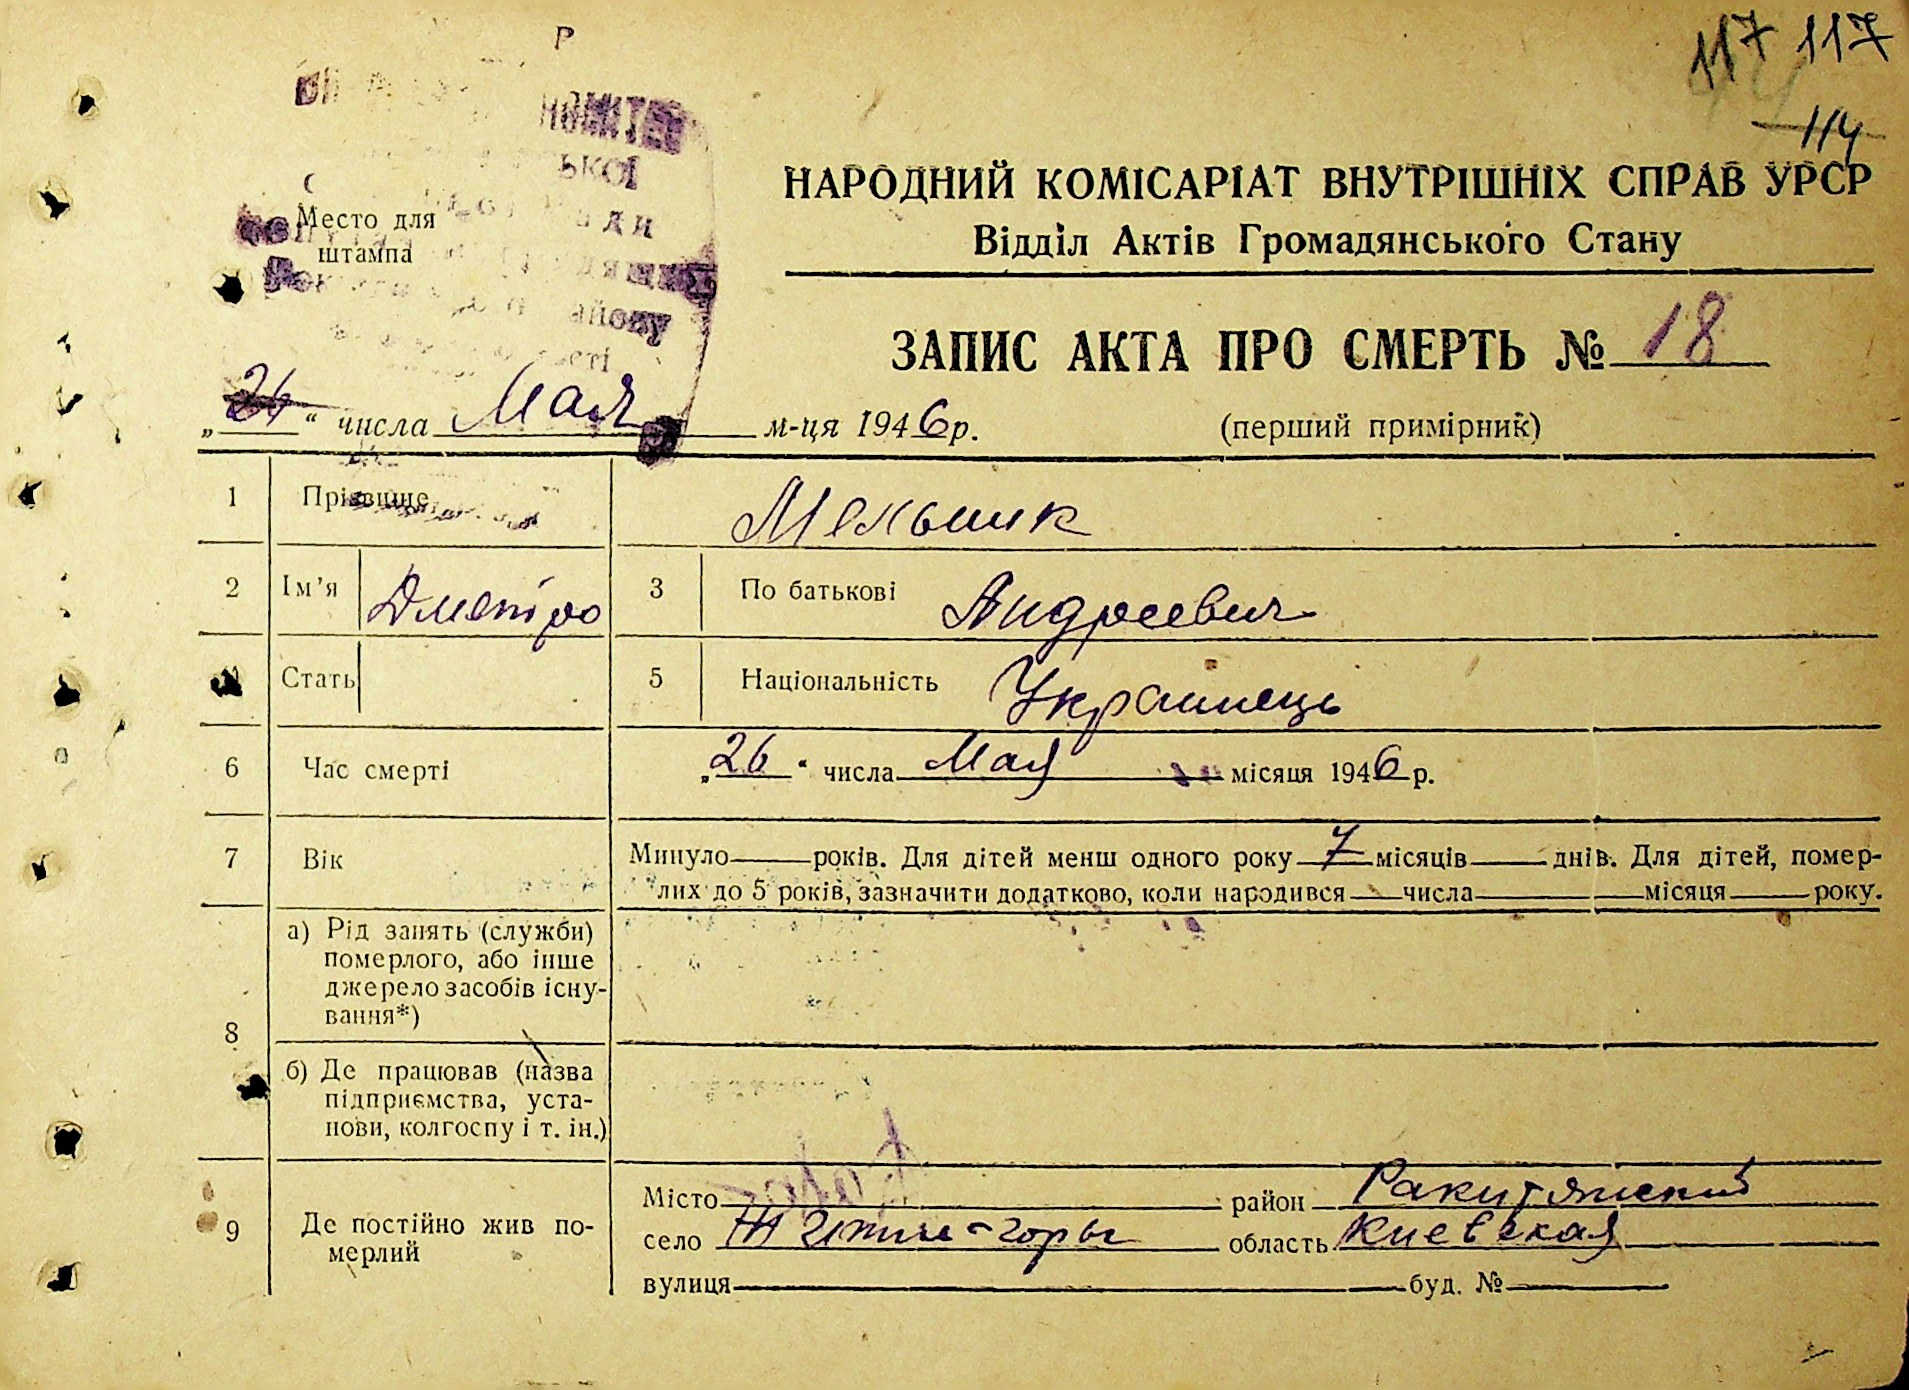 117 117
114
НАРОДНИЙ КОМІСАРІАТ ВНУТРІШНІХ СПРАВ УРСР
Відділ Актів Громадянського Стану
Место для
штампа
ЗАПИС АКТА ПРО СМЕРТЬ № 18
„26“ числа Мая м-ця 1946 р.
(перший примірник)
1 Прізвище Мельник
2 Ім'я Дметіро 3 По батькові Андреевич
4 Стать 5 Національність Украинець
6 Час смерті „26“ числа Мая місяця 1946 р.
7 Вік Минуло років. Для дітей менш одного року 7 місяців днів. Для дітей, помер-
лих до 5 років, зазначити додатково, коли народився числа місяця року.
8 а) Рід занять (служби)
померлого, або інше
джерело засобів існу-
вання*)
б) Де працював (назва
підприємства, уста-
нови, колгоспу і т. ін.)
9 Де постійно жив по-
мерлий
Місто район Ракитянский
село Житни-горы область Киевская
вулиця буд. №